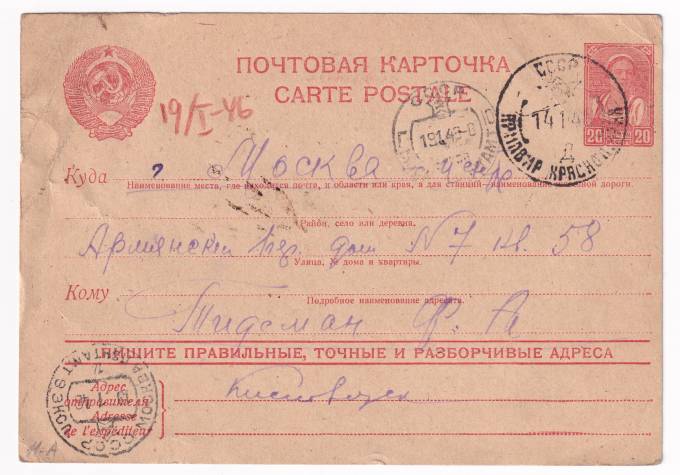 ПОЧТОВАЯ КАРТОЧКА
CARTE POSTALE
19/I-46
СССР
20 20
Куда г Москва центр
Наименование места, где находится почта, и области или края, а для станций наименование железной дороги.
Район, село или деревня.
Армянский пер. дом N 7 кв. 58
Улица, № дома и квартиры.
Кому
Подробное наименование адресата.
Тидеман Ф. А
ПИШИТЕ ПРАВИЛЬНЫЕ, ТОЧНЫЕ И РАЗБОРЧИВЫЕ АДРЕСА
Адрес отправителя
Кисловодск
Adresse de l'expéditeur
СССР МОСКВА